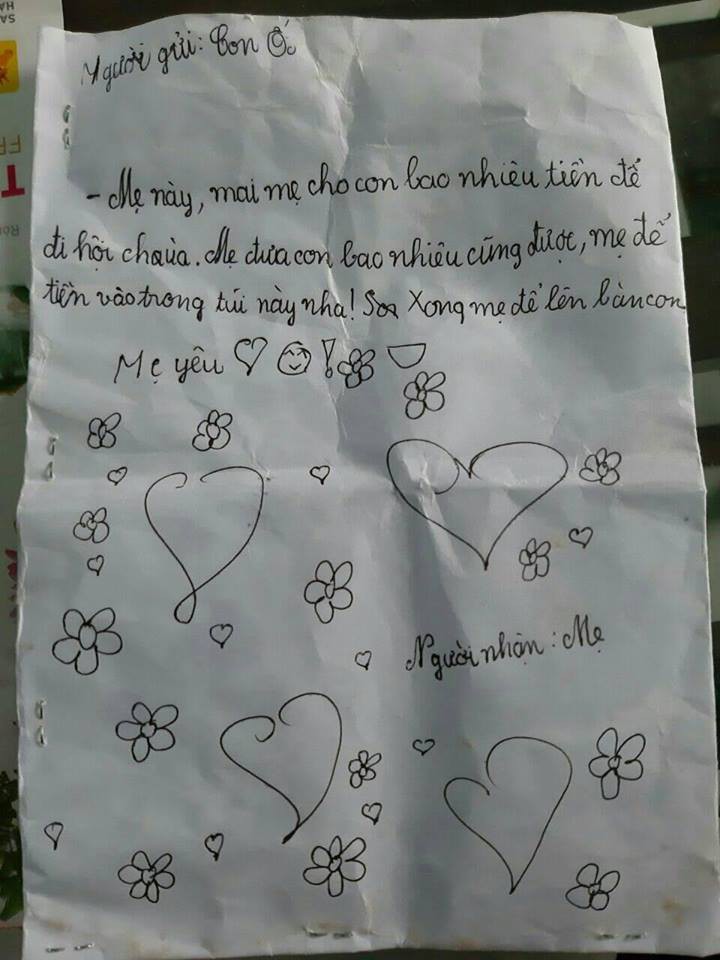 Người gửi: Con Ốc
- Mẹ này, mai mẹ cho con bao nhiêu tiền để
đi hội chưa. Mẹ đưa con bao nhiêu cũng được, mẹ để
tiền vào trong túi này nha! Xong mẹ để lên bàn con
Mẹ yêu
Người nhận: Mẹ